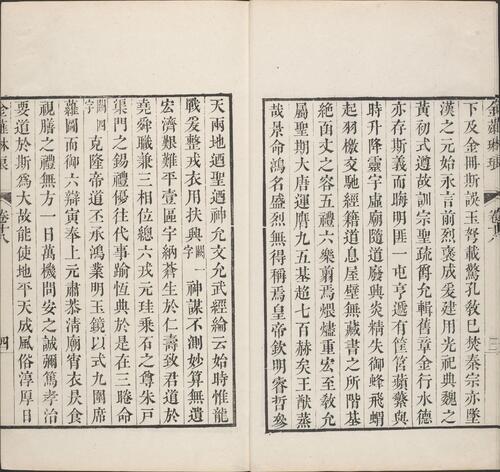 金薤琳琅
下及金冊斯談玉弩載驚孔敎已焚秦宗亦墜
漢之元始永言前烈襃成爰建用光祀典魏之
黃初式遵故訓宗聖疏爵允輯舊章金行水德
亦存斯義而晦明匪一屯亨遞有筐筥蘋蘩與
時升降靈宇虛廟隨道廢興炎精失御蜂飛蝟
起羽檄交馳經籍道息屋壁無藏書之所階基
絕函丈之容五禮六樂翦焉煨燼重宏至敎允
屬聖期大唐運膺九五基超七百赫矣王猷蒸
哉景命鴻名盛烈無得稱焉皇帝欽明睿哲參
天兩地迺聖迺神允文允武經綸云始時惟龍
戰爰整戎衣用扶興闕一字神謀不測妙算無遺
宏濟艱難平壹區宇納蒼生於仁壽致君道於
堯舜職兼三相位總六戎元珪乘石之尊朱戸
渠門之錫禮優往代事踰恆典於是在三睠命
闕四字克隆帝道丕承鴻業明玉鏡以式九圍席
蘿圖而御六辯寅奉上元肅恭清廟宵衣昃食
視膳之禮無方一日萬機問安之誠彌篤孝治
要道於斯爲大故能使地平天成風俗淳厚日
金薤琳琅
四